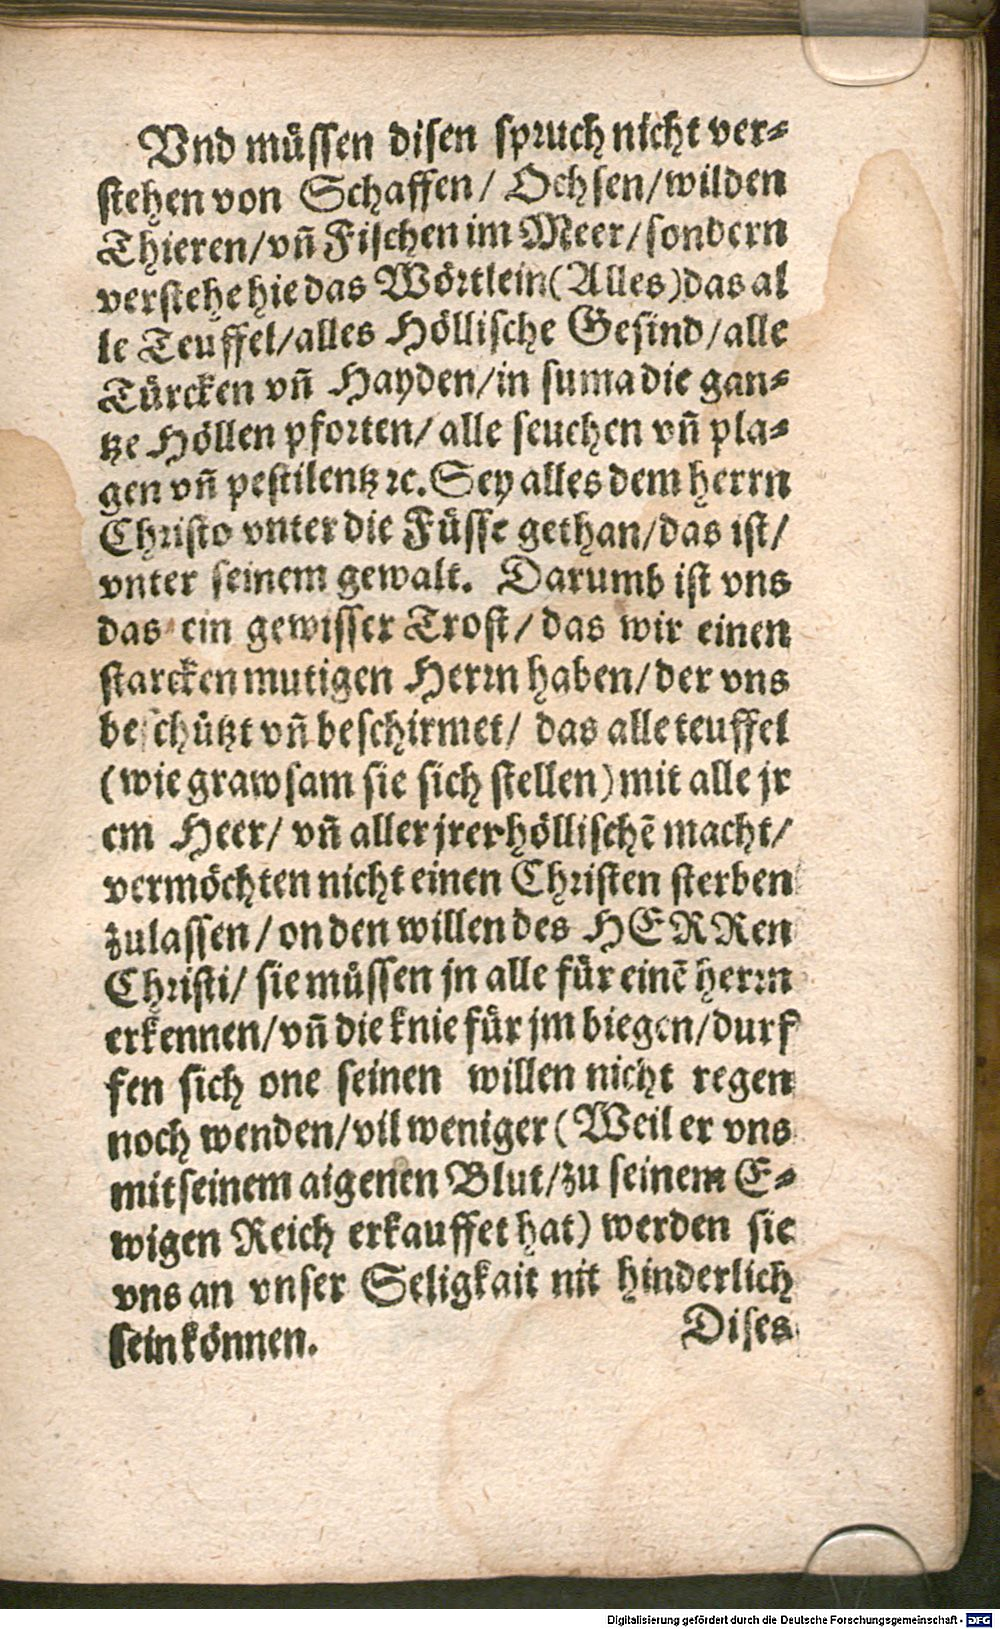 Vnd müssen disen spruch nicht ver⸗
stehen von Schaffen / Ochsen / wilden
Thieren / vñ Fischen im Meer / sondern
verstehe hie das Wörtlein (Alles) das al
le Teuffel / alles Höllische Gesind / alle
Türcken vñ Hayden / in suma die gan⸗
tze Höllen pforten / alle seuchen vñ pla⸗
gen vñ pestilentz ꝛc. Sey alles dem herrn
Christo vnter die Füsse gethan / das ist /
vnter seinem gewalt. Darumb ist vns
das ein gewisser Trost / das wir einen
starcken mutigen Herrn haben / der vns
beschützt vñ beschirmet / das alle teuffel
(wie grawsam sie sich stellen) mit alle jr
em Heer / vñ aller jrer höllischẽ macht /
vermöchten nicht einen Christen sterben
zulassen / on den willen des HERRen
Christi / sie müssen jn alle für einẽ herrn
erkennen / vñ die knie für jm biegen / durf
fen sich one seinen willen nicht regen
noch wenden / vil weniger (Weil er vns
mit seinem aigenen Blut / zu seinem E⸗
wigen Reich erkauffet hat) werden sie
vns an vnser Seligkait nit hinderlich
sein können.
Dises
Digitalisierung gefördert durch die Deutsche Forschungsgemeinschaft - DFG